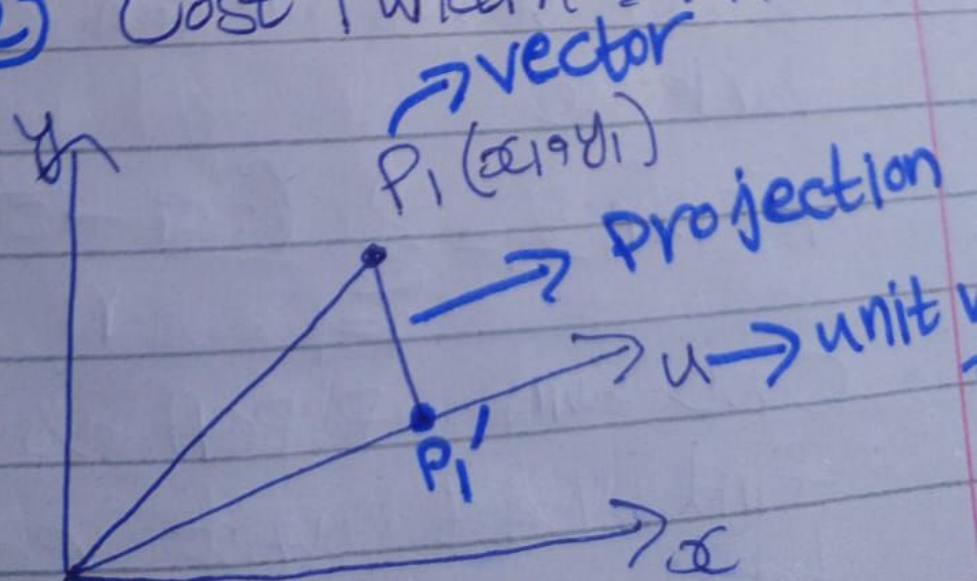 Cost
vector
y
P₁ (x₁, y₁)
Projection
u → unit
P₁'
x